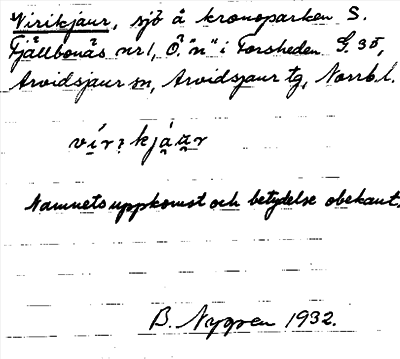 Virikjaur, sjö å kronoparken S.
Fjällbonäs nr 1, Ö. "n" i Forsheden. G. 35,
Arvidsjaur sn, Arvidsjaur tg, Norrb. l.
Namnets uppkomst och betydelse obekant.
B. Nygren 1932.